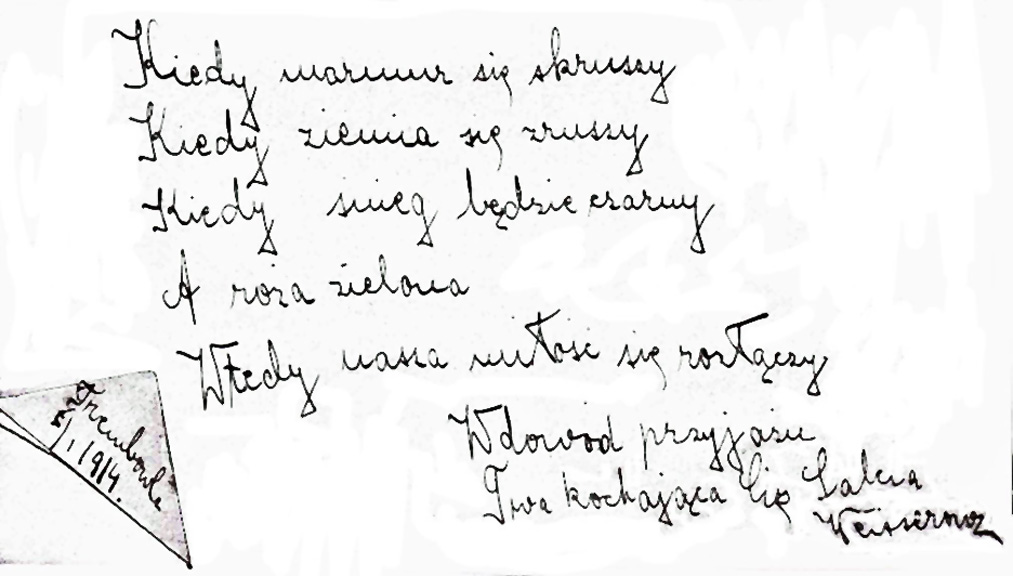 Kiedy marmur się skruszy
Kiedy ziemia się zruszy
Kiedy snieg będzie czarny
A roza zielona
Wtedy nasza miłośc się rozłączy
W dowod przyjazni
Twa kochająca Cię Salcia
Trembowla
5/1 1914.